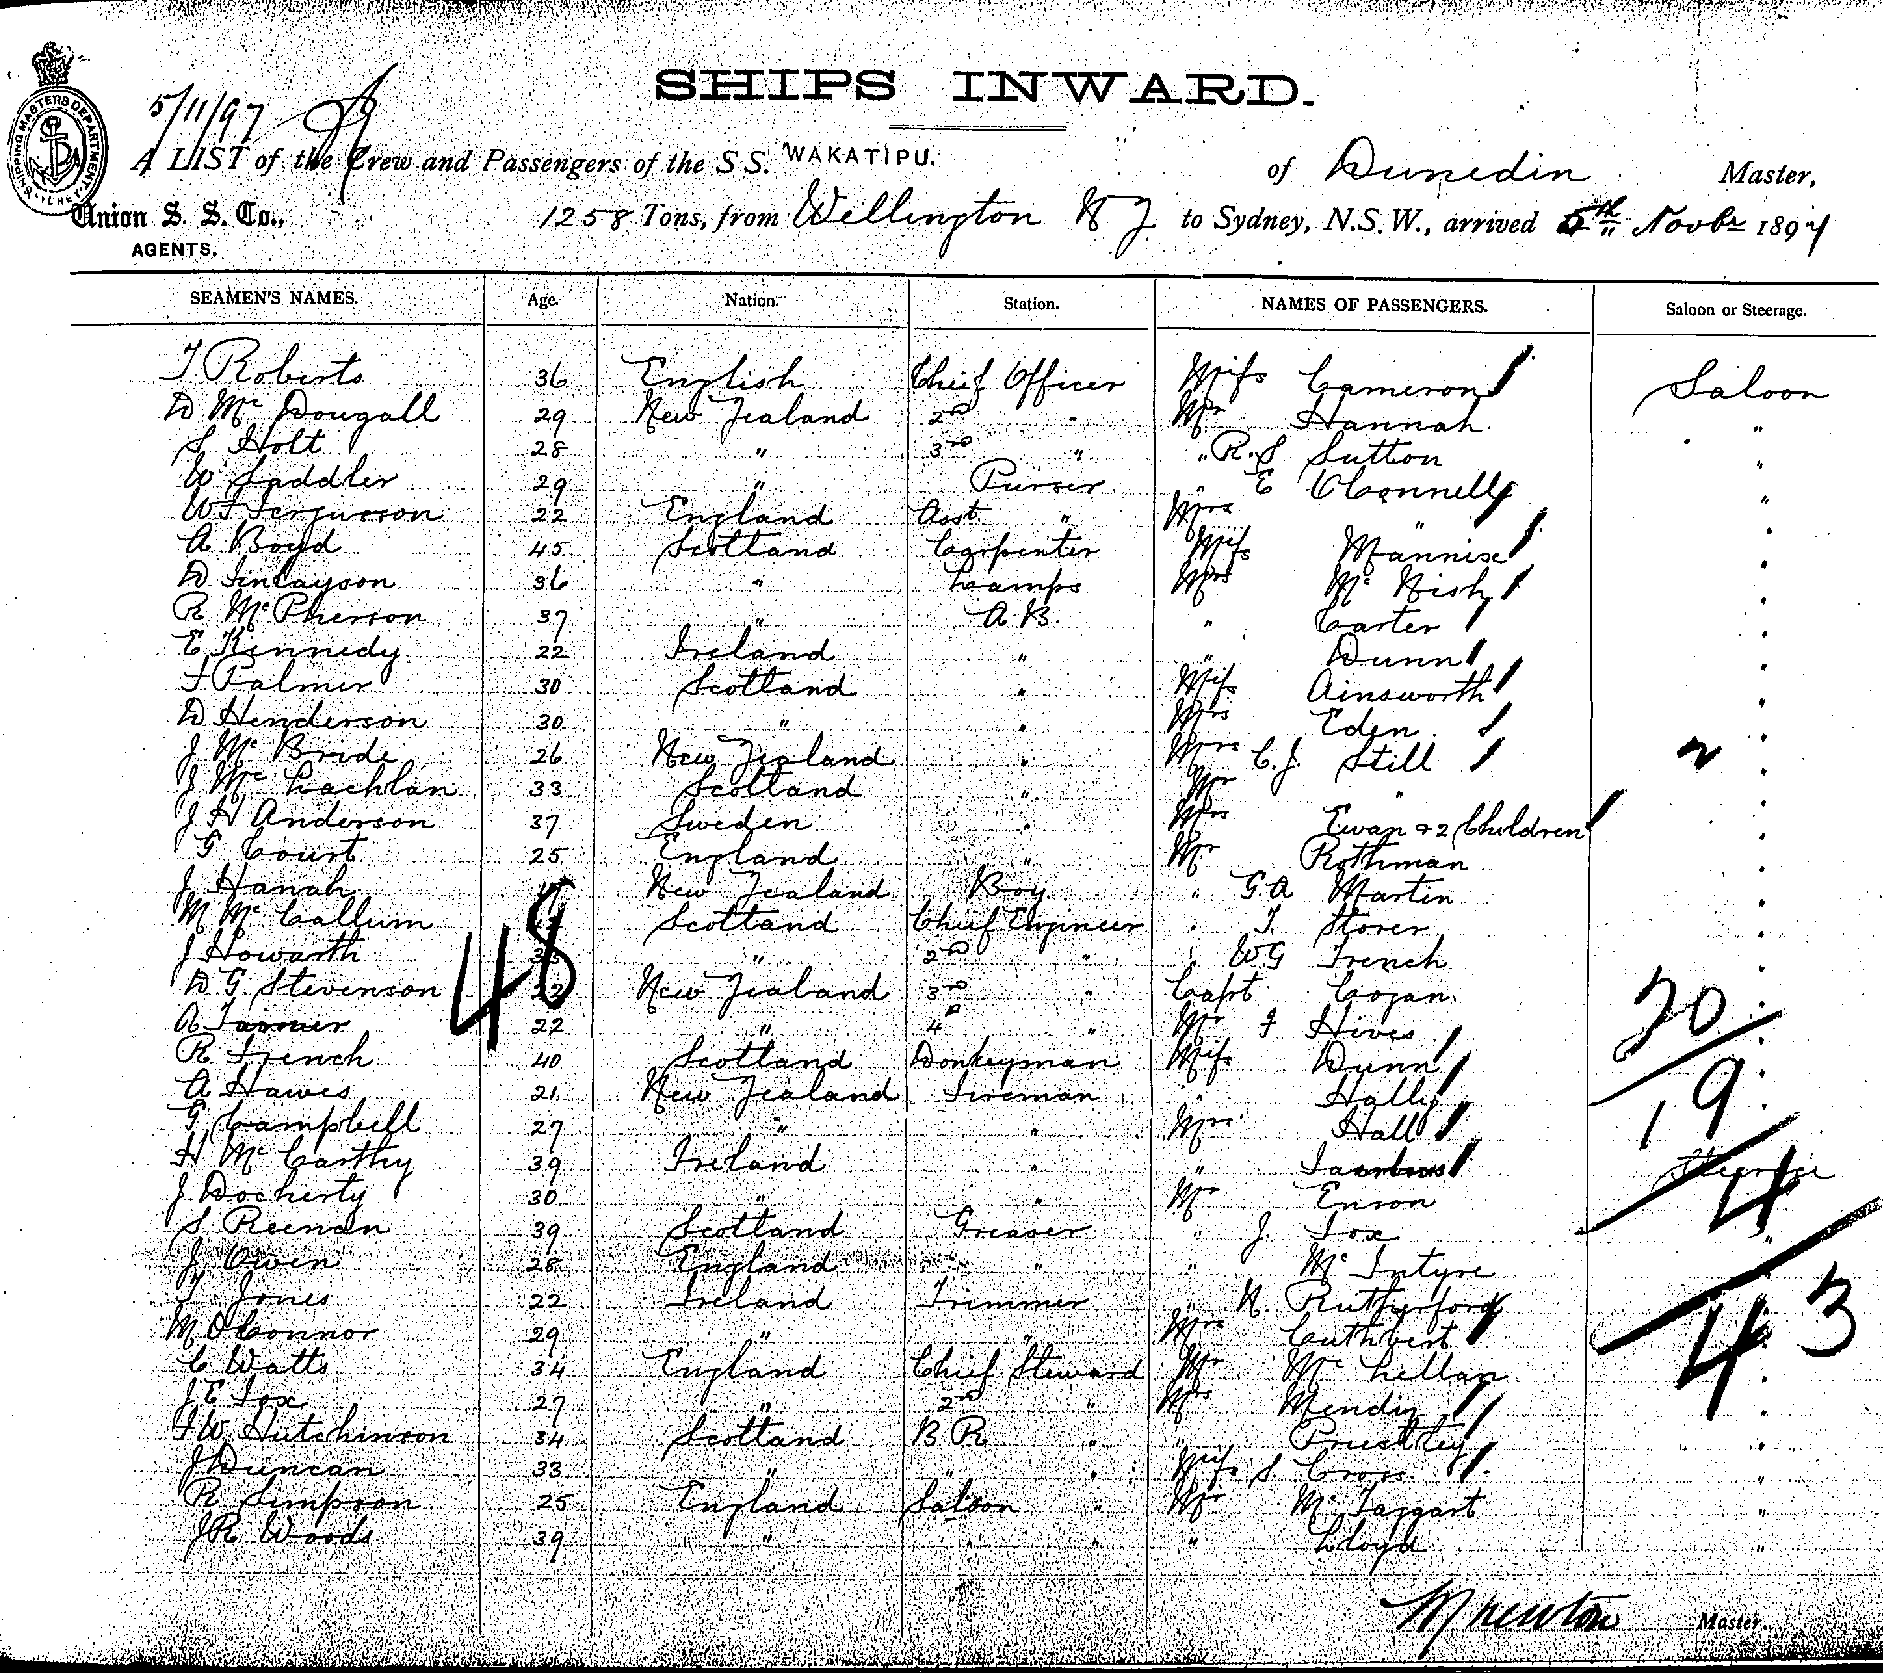 SHIPS INWARD.
5/11/97
SHIPPING MASTERS DEPARTMENT
A LIST of the Crew and Passengers of the S S. WAKATIPU. of Dunedin Master,
Union S. S. Co., 1258 Tons, from Wellington N Z to Sydney, N.S.W., arrived 5th Novbr 1897
AGENTS.
SEAMEN'S NAMES. Age. Nation. Station. NAMES OF PASSENGERS. Saloon or Steerage.
T Roberts 36 English Chief Officer Miss Cameron Saloon
D McDougall 29 New Zealand 2nd " Mr Hannah "
S Holt 28 " 3rd " " R. S Sutton "
W Saddler 29 " Purser " E OConnell "
W F Fergusson 22 England Asst " Mrs " "
A Boyd 45 Scotland Carpenter Miss Mannise "
D Finlayson 36 " Lamps Mrs McNish "
R McPherson 37 " A.B. " Carter "
E Kennedy 22 Ireland " " Dunn "
F Palmer 30 Scotland " Miss Ainsworth "
D Henderson 30 " " Mrs Eden "
J McBride 26 New Zealand " Mrs C. J. Still "
J McLachlan 33 Scotland " Mr " "
J H Anderson 37 Sweden " Mrs Ewan & 2 Children "
G Court 25 England " Mr Rothman "
J Hanah New Zealand Boy " G A Martin "
M McCallum Scotland Chief Engineer " T. Storer "
J Howarth 33 " 2nd " " W G French "
D G Stevenson 22 New Zealand 3rd " Capt Cozan "
48 20
A Tanner 22 " 4th " Mr F Hives "
R French 40 Scotland Donkeyman Miss Dunn "
A Hawes 21 New Zealand Fireman " Hally "
19
G Campbell 27 " " Mrs Hall "
H McCarthy 39 Ireland " " Steerage
J Docherty 30 " " Mr Enson
4
S Reenan 39 Scotland Greaser " J. Fox "
J Owen 28 England " " McIntyre
T Jones 22 Ireland Trimmer " N. Rutherford "
43
M OConnor 29 " " Mrs Cuthbert "
C Watts 34 England Chief Steward Mr McLellan "
J E Fox 27 " 2nd " Mrs "
F W Hutchinson 34 Scotland B R " " Priestley "
J Duncan 33 " " " Miss S. Cross "
R Simpson 25 England Saloon " Mr McTaggart "
J R Woods 39 " " " " Lloyd "
M Newton Master